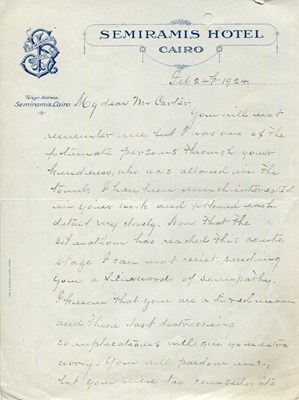 SEMIRAMIS HOTEL
CAIRO
Telegr. Address:
Semiramis, Cairo
Feb 24th 1924.
My dear Mr Carter,
You will not
remember me but I was one of the
fortunate persons through your
kindness, who was allowed in the
tombs. I have been much interested
in your work and followed each
detail very closely. Now that the
situation has reached this acute
stage I can not resist sending
you a few words of sympathy.
I know that you are a
and these last distressing
complications will give you extra
worry. You will pardon me,
but you were so considerate